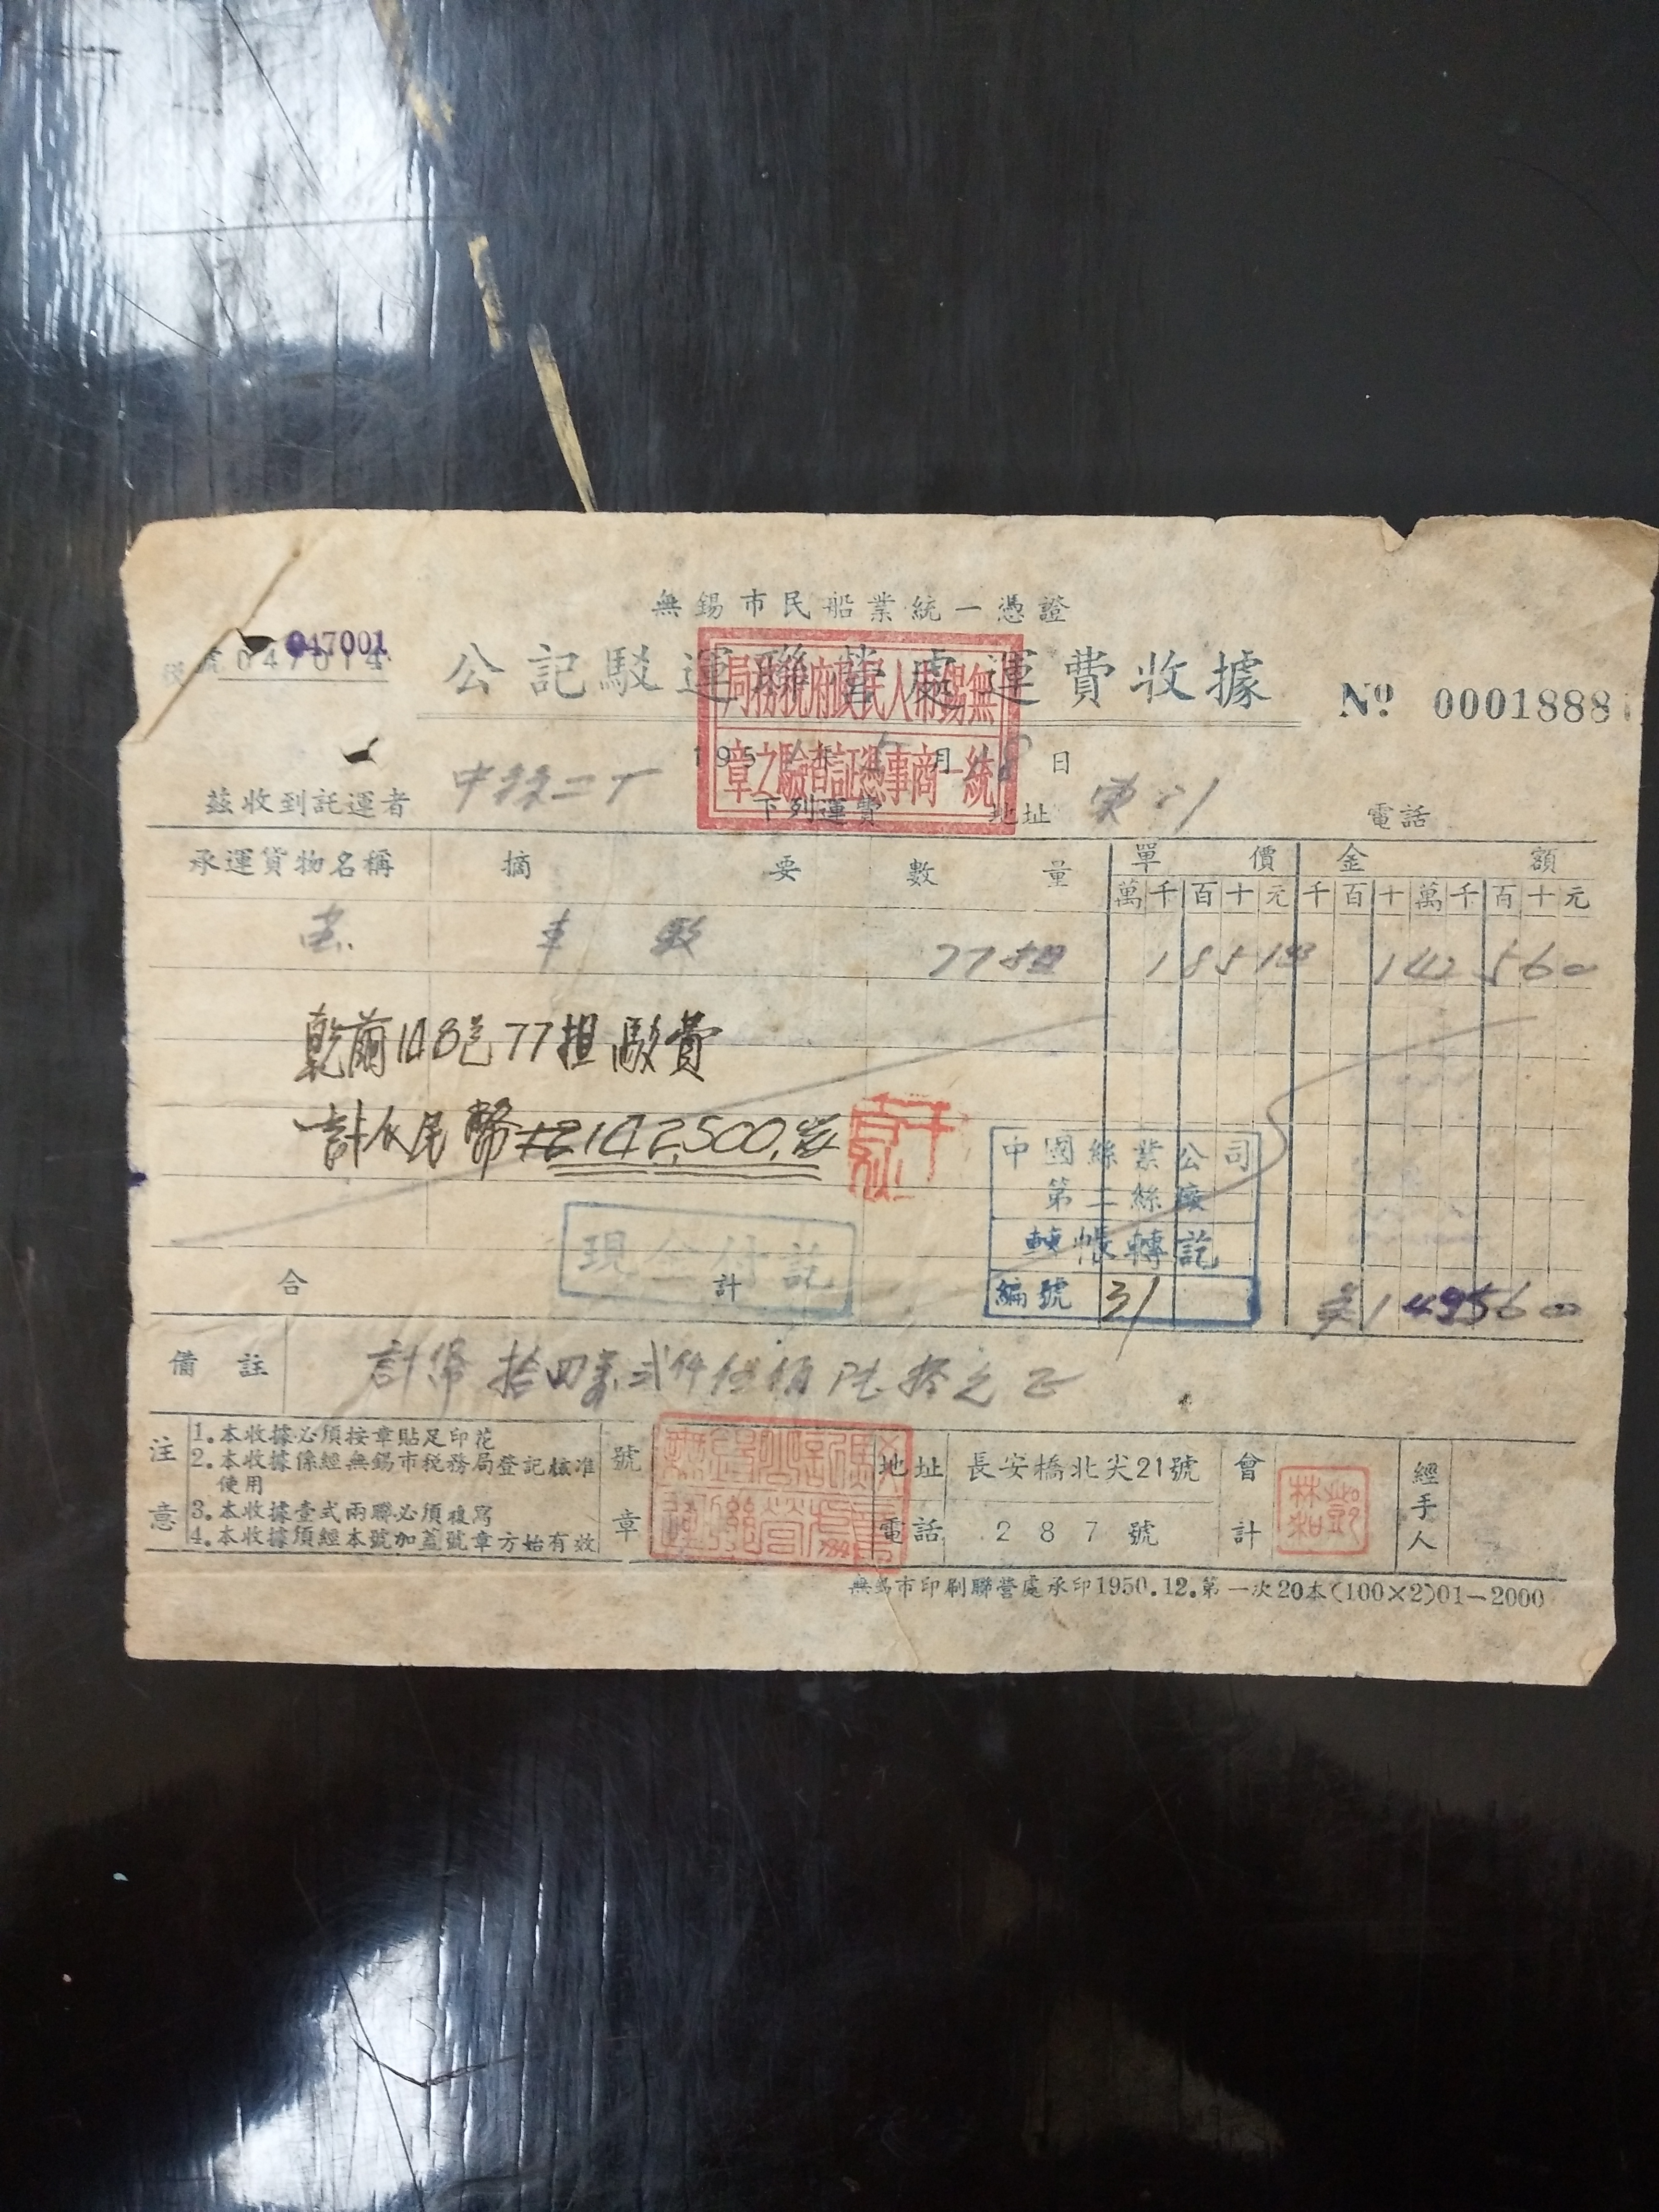 無錫市民船業統一憑證
047001
號047014
公記駁運聯營處運費收據
No 0001888
無錫市人民政府稅務局
統一商事憑証查驗之章
195 年 月 日
茲收到託運者 中絲二厂 下列運費 地址 電話
承運貨物名稱 摘要 數量 單價 金額
萬千百十元 千百十萬千百十元
車 駁 77担 142560
乾繭148包77担駁費
計人民幣142,500
中國絲業公司
第二絲廠
轉帳轉訖
編號 31
現金付訖
合計
備註 計幣拾四萬弍仟伍佰陸拾元正
注意
1.本收據必須按章貼足印花
2.本收據係經無錫市稅務局登記核准使用
3.本收據壹式兩聯必須複寫
4.本收據須經本號加蓋號章方始有效
號章
地址 長安橋北尖21號
電話 287號
會計
經手人
無錫市印刷聯營處承印1950.12.第一次20本(100×2)01—2000